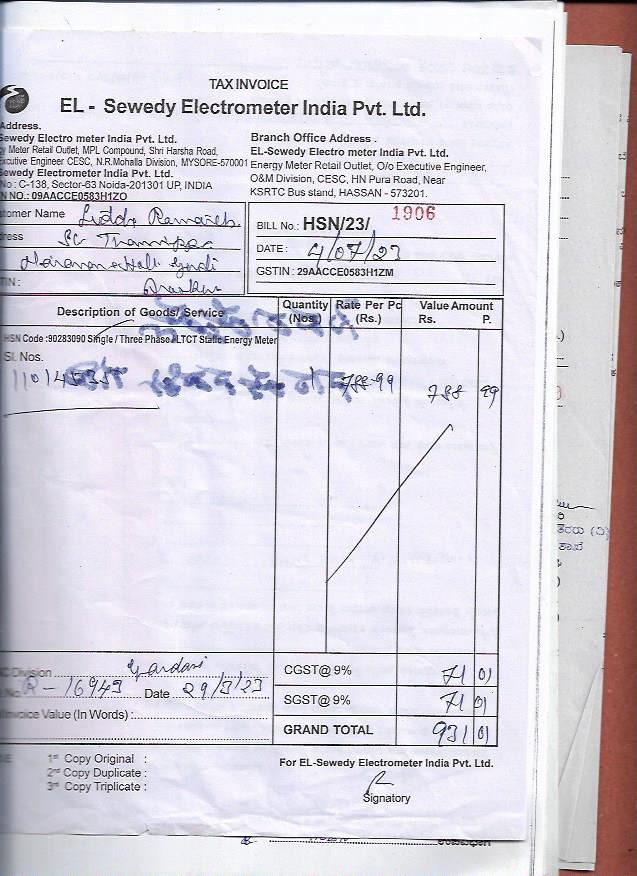 TAX INVOICE
EL - Sewedy Electrometer India Pvt. Ltd.
Address.
Sewedy Electro meter India Pvt. Ltd.
y Meter Retail Outlet, MPL Compound, Shri Harsha Road,
xecutive Engineer CESC, N.R.Mohalla Division, MYSORE-570001
Sewedy Electrometer India Pvt. Ltd.
No : C-138, Sector-63 Noida-201301 UP, INDIA
N NO.: 09AACCE0583H1ZO
Branch Office Address .
EL-Sewedy Electro meter India Pvt. Ltd.
Energy Meter Retail Outlet, O/o Executive Engineer,
O&M Division, CESC, HN Pura Road, Near
KSRTC Bus stand, HASSAN - 573201.
tomer Name
ress
TIN :
BILL No.: HSN/23/ 1906
DATE : 4/07/23
GSTIN : 29AACCE0583H1ZM
Description of Goods/ Service Quantity (Nos.) Rate Per Pc (Rs.) Value Amount Rs. P.
HSN Code :90283090 Single / Three Phase / LTCT Static Energy Meter
Sl. Nos.
788-99 788 99
Division
R-16943 Date 29/3/23
Invoice Value (In Words) :
CGST@ 9% 71 01
SGST@ 9% 71 01
GRAND TOTAL 931 01
1st Copy Original :
2nd Copy Duplicate :
3rd Copy Triplicate :
For EL-Sewedy Electrometer India Pvt. Ltd.
Signatory